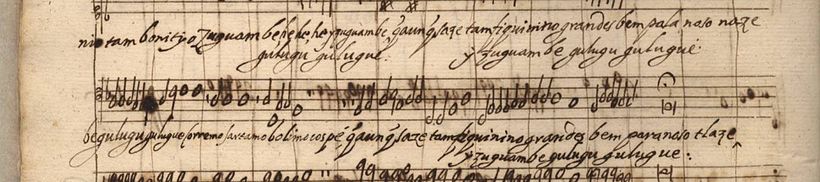 niño tam bonityo Zuguambe he he he yzuguambe q̃ aunq̃ saze tam fiquinino grandes bem pala naso naze
gulugu gulugue: y zuguambe gulugu gulugue:
be gulugu gulugue sorremo saltamo bolimo cos pe q̃ aunq̃ saze tam fiquinino grandes bem para naso tlaze
y zuguambe gulugu gulugue: